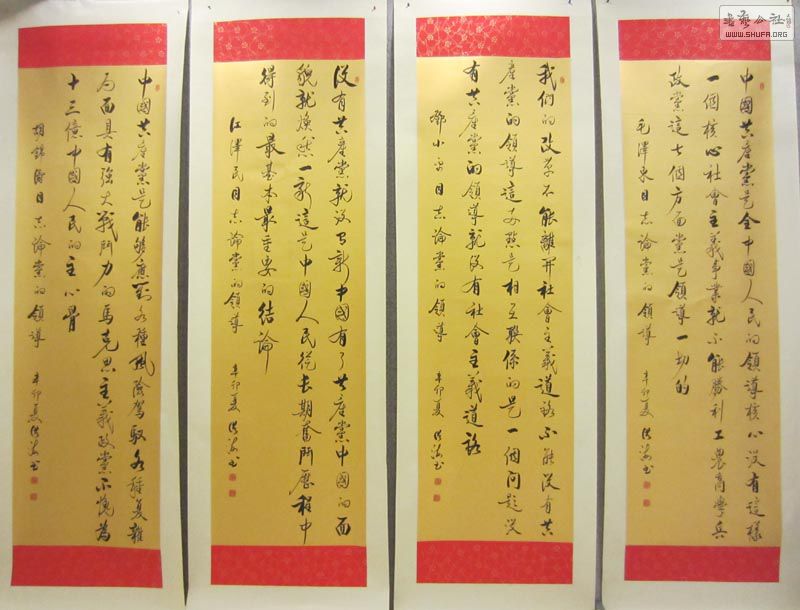 書藝公社
WWW.SHUFA.ORG
中國共產黨是全中國人民的領導核心没有這樣
一個核心社會主義事業就不能勝利工農商學兵
政黨這七個方面黨是領導一切的
毛澤東同志論黨的領導 辛卯夏 书
我們的改革不能離開社會主義道路不能没有共
產黨的領導這两點是相互聯係的是一個問題没
有共產黨的領導就没有社會主義道路
鄧小平同志論黨的領導 辛卯夏 书
没有共產黨就没有新中國有了共產黨中國的面
貌就焕然一新這是中國人民從長期奮鬥歷程中
得到的最基本最重要的結論
江澤民同志論黨的領導 辛卯夏 书
中國共產黨是能够應對各種風險駕馭各種复雜
局面具有强大戰鬥力的馬克思主義政黨不愧為
十三億中國人民的主心骨
胡錦濤同志論黨的領導 辛卯夏 书